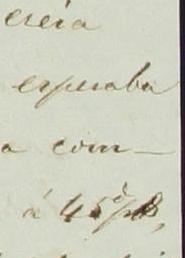 creia
esperaba
a com—
á 45